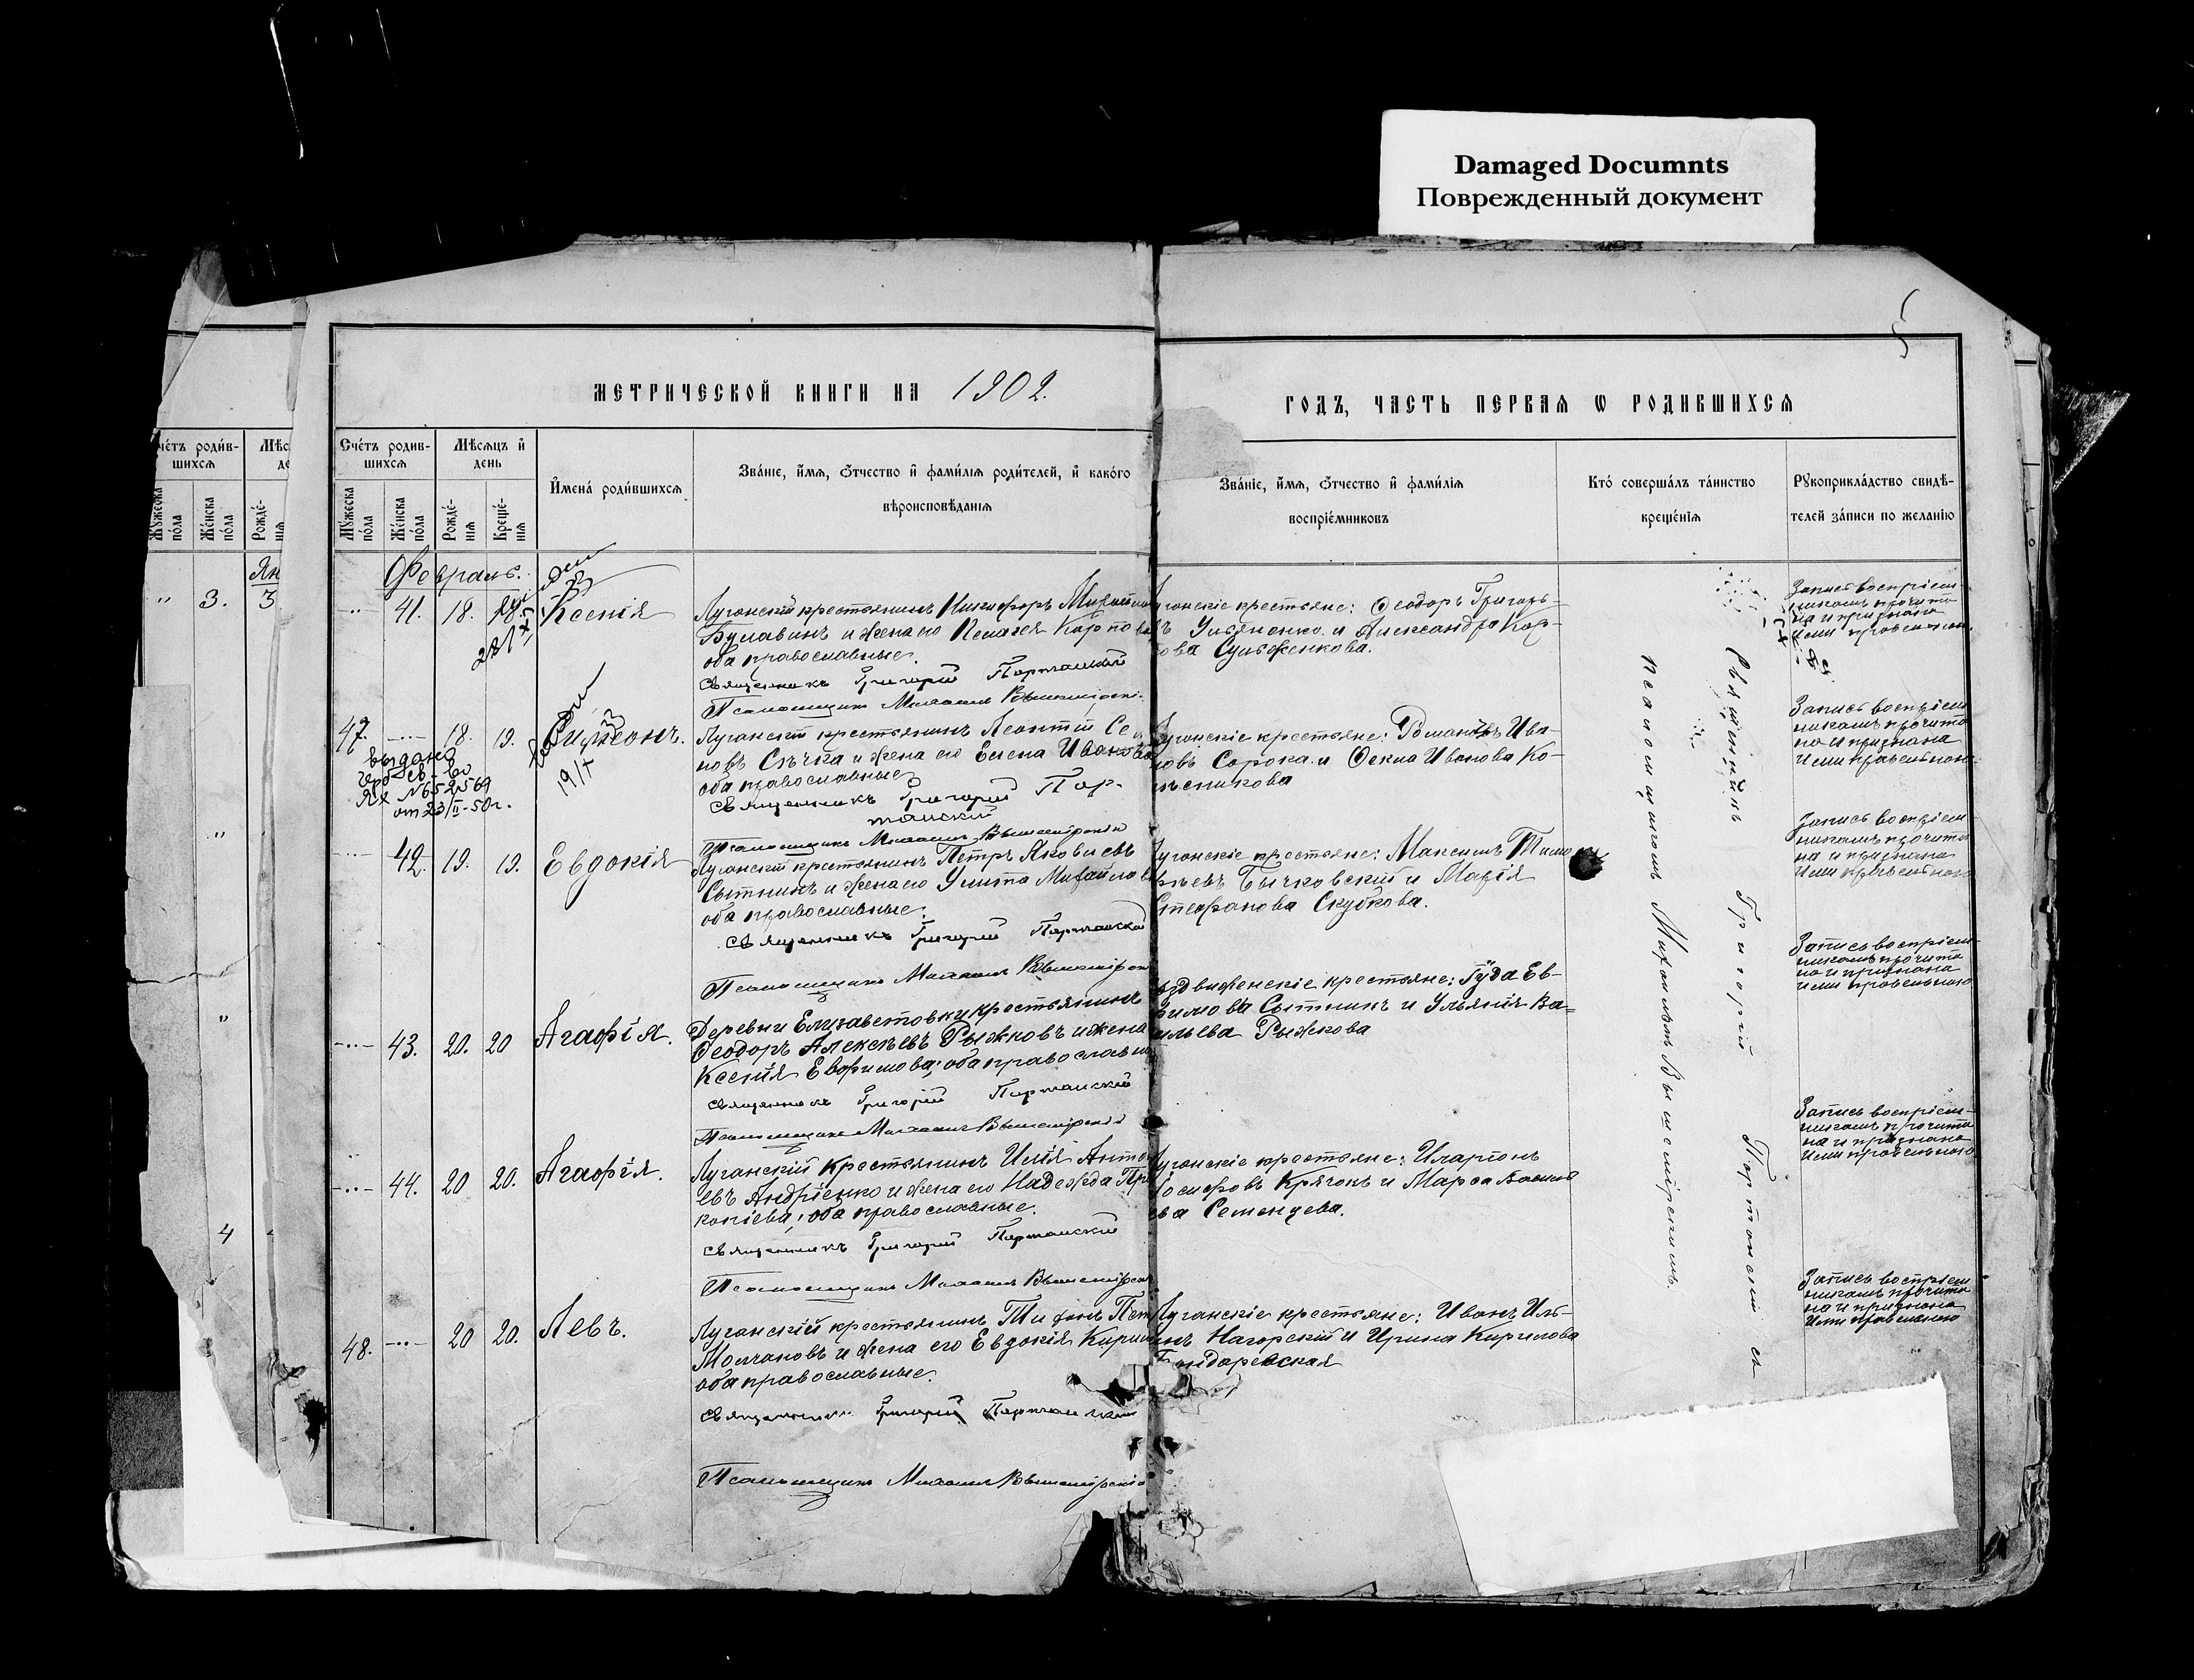 Damaged Documnts
Поврежденный документ
МЕТРИЧЕСКОЙ КНИГИ НА 1902.
ГОДЪ, ЧАСТЬ ПЕРВАЯ Ѡ РОДИВШИХСЯ
Счетъ родив-
шихся
Мужеска
пола
Женска
пола
Мѣсяцъ и
день
Рожде-
нія
Креще-
нія
Имена родившихся
Званіе, имя, отчество и фамилія родителей, и какого
вѣроисповѣданія
Званіе, имя, отчество и фамилія
воспріемниковъ
Кто совершалъ таинство
крещенія
Рукоприкладство свидѣ-
телей записи по желанію
Февраль.
41. 18. 18. Ксенія
Луганскій крестьянинъ Никифоръ
Булавинъ и жена его Пелагея Карпова
оба православные.
Священникъ Григорій Портанскій
Псаломщикъ Михаилъ Вышемірскій
Луганскіе крестьяне: Ѳеодоръ Григорь-
евъ Ульяненко и Александра Кар-
пова Сульженкова.
Запись воспріем-
никамъ прочита
на и признана
ими правильною
47. 18. 19. Симеонъ.
выдано
от 23/II-50г.
Луганскій крестьянинъ Леонтій Се
новъ Съчка и жена его Елена Иванова
оба православные
Священникъ Григорій Пор-
танскій
Псаломщикъ Михаилъ Вышемірскій
Луганскіе крестьяне: Романъ Ива-
новъ Сорока и Ѳекла Иванова Ко-
лѣсникова
Запись воспріем
никамъ прочита
на и признана
ими правильною
42. 19. 19. Евдокія
Луганскій крестьянинъ Петръ Яковлевъ
Сытникъ и жена его Улита Михайлова
оба православные.
Священникъ Григорій Портанскій
Псаломщикъ Михаилъ Вышемірскій
Луганскіе крестьяне: Максимъ Тимо
Бычковскій и Марія
Стефанова Скубкова.
Запись воспріем
никамъ прочита
на и признана
ими правильною
43. 20. 20 Агафія.
Деревни Елизаветовки крестьянинъ
Ѳеодоръ Алексѣевъ Рыжковъ и жена
Ксенія Евфимова; оба православные
Священникъ Григорій Портанскій
Псаломщикъ Михаилъ Вышемірскій
крестьяне: Іуда Ев-
фимова Сытникъ и Ульянія Ва=
сильева Рыжкова
Запись воспріем-
никамъ прочита
на и признана
ими правильною
44. 20 20. Агафія.
Луганскій крестьянинъ Илія Анто
евъ Андрѣенко и жена его Надежда Про
копіева, оба православные.
Священникъ Григорій Портанскій
Псаломщикъ Михаилъ Вышемірскій
Луганскіе крестьяне: Иларіонъ
Іосифовъ Крячокъ и Марѳа Василь
ева Семенцева.
Запись воспріем-
никамъ прочита
на и признана
ими правильною
48. 20 20. Левъ.
Луганскій крестьянинъ Тихонъ Пет
Молчановъ и жена его Евдокія Кирил
оба православные.
Священникъ Григорій Портанскій
Псаломщикъ Михаилъ Вышемірскій
Луганскіе крестьяне: Иванъ Иль-
инъ Нагорскій и Ирина Кирилова
Бондаревская
Запись воспріем
никамъ прочита
на и признана
ими правильною
Священникъ Григорій Портанскій съ
псаломщикомъ Михаиломъ Вышемірскимъ.